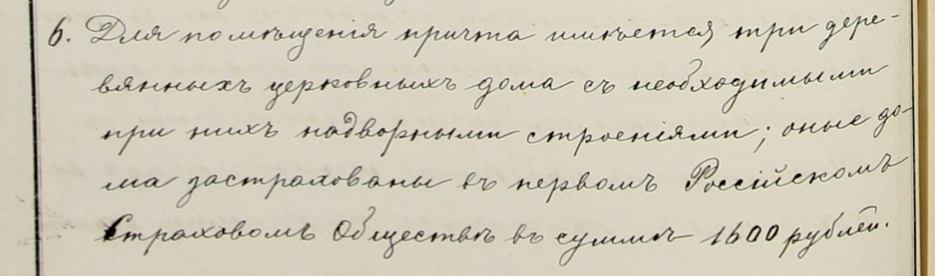 6. Для помѣщенія причта имѣется три дере-
вянныхъ церковныхъ дома съ необходимыми
при нихъ надворными строеніями; оные до-
ма застрахованы въ первомъ Россійскомъ
Страховомъ Обществѣ въ суммѣ 1600 рублей.